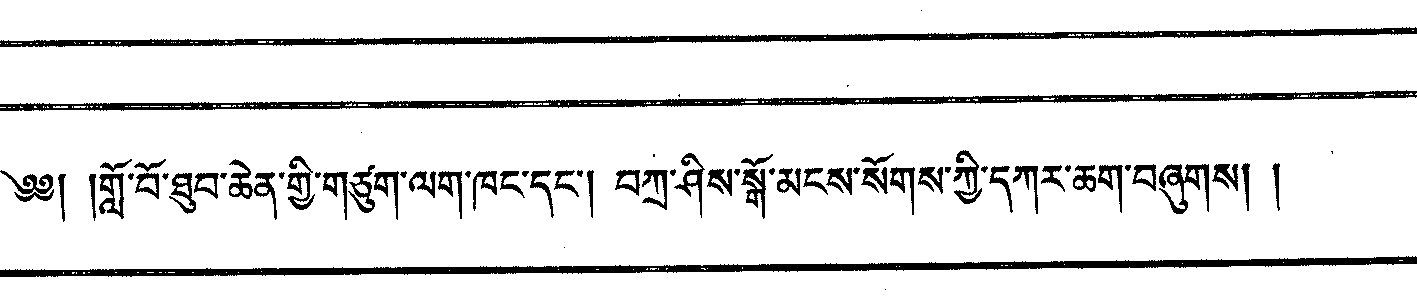 ༄༅། །གློ་བོ་ཐུབ་ཆེན་གྱི་གཙུག་ལག་ཁང་དང་། བཀྲ་ཤིས་སྒོ་མངས་སོགས་ཀྱི་དཀར་ཆག་བཞུགས། །